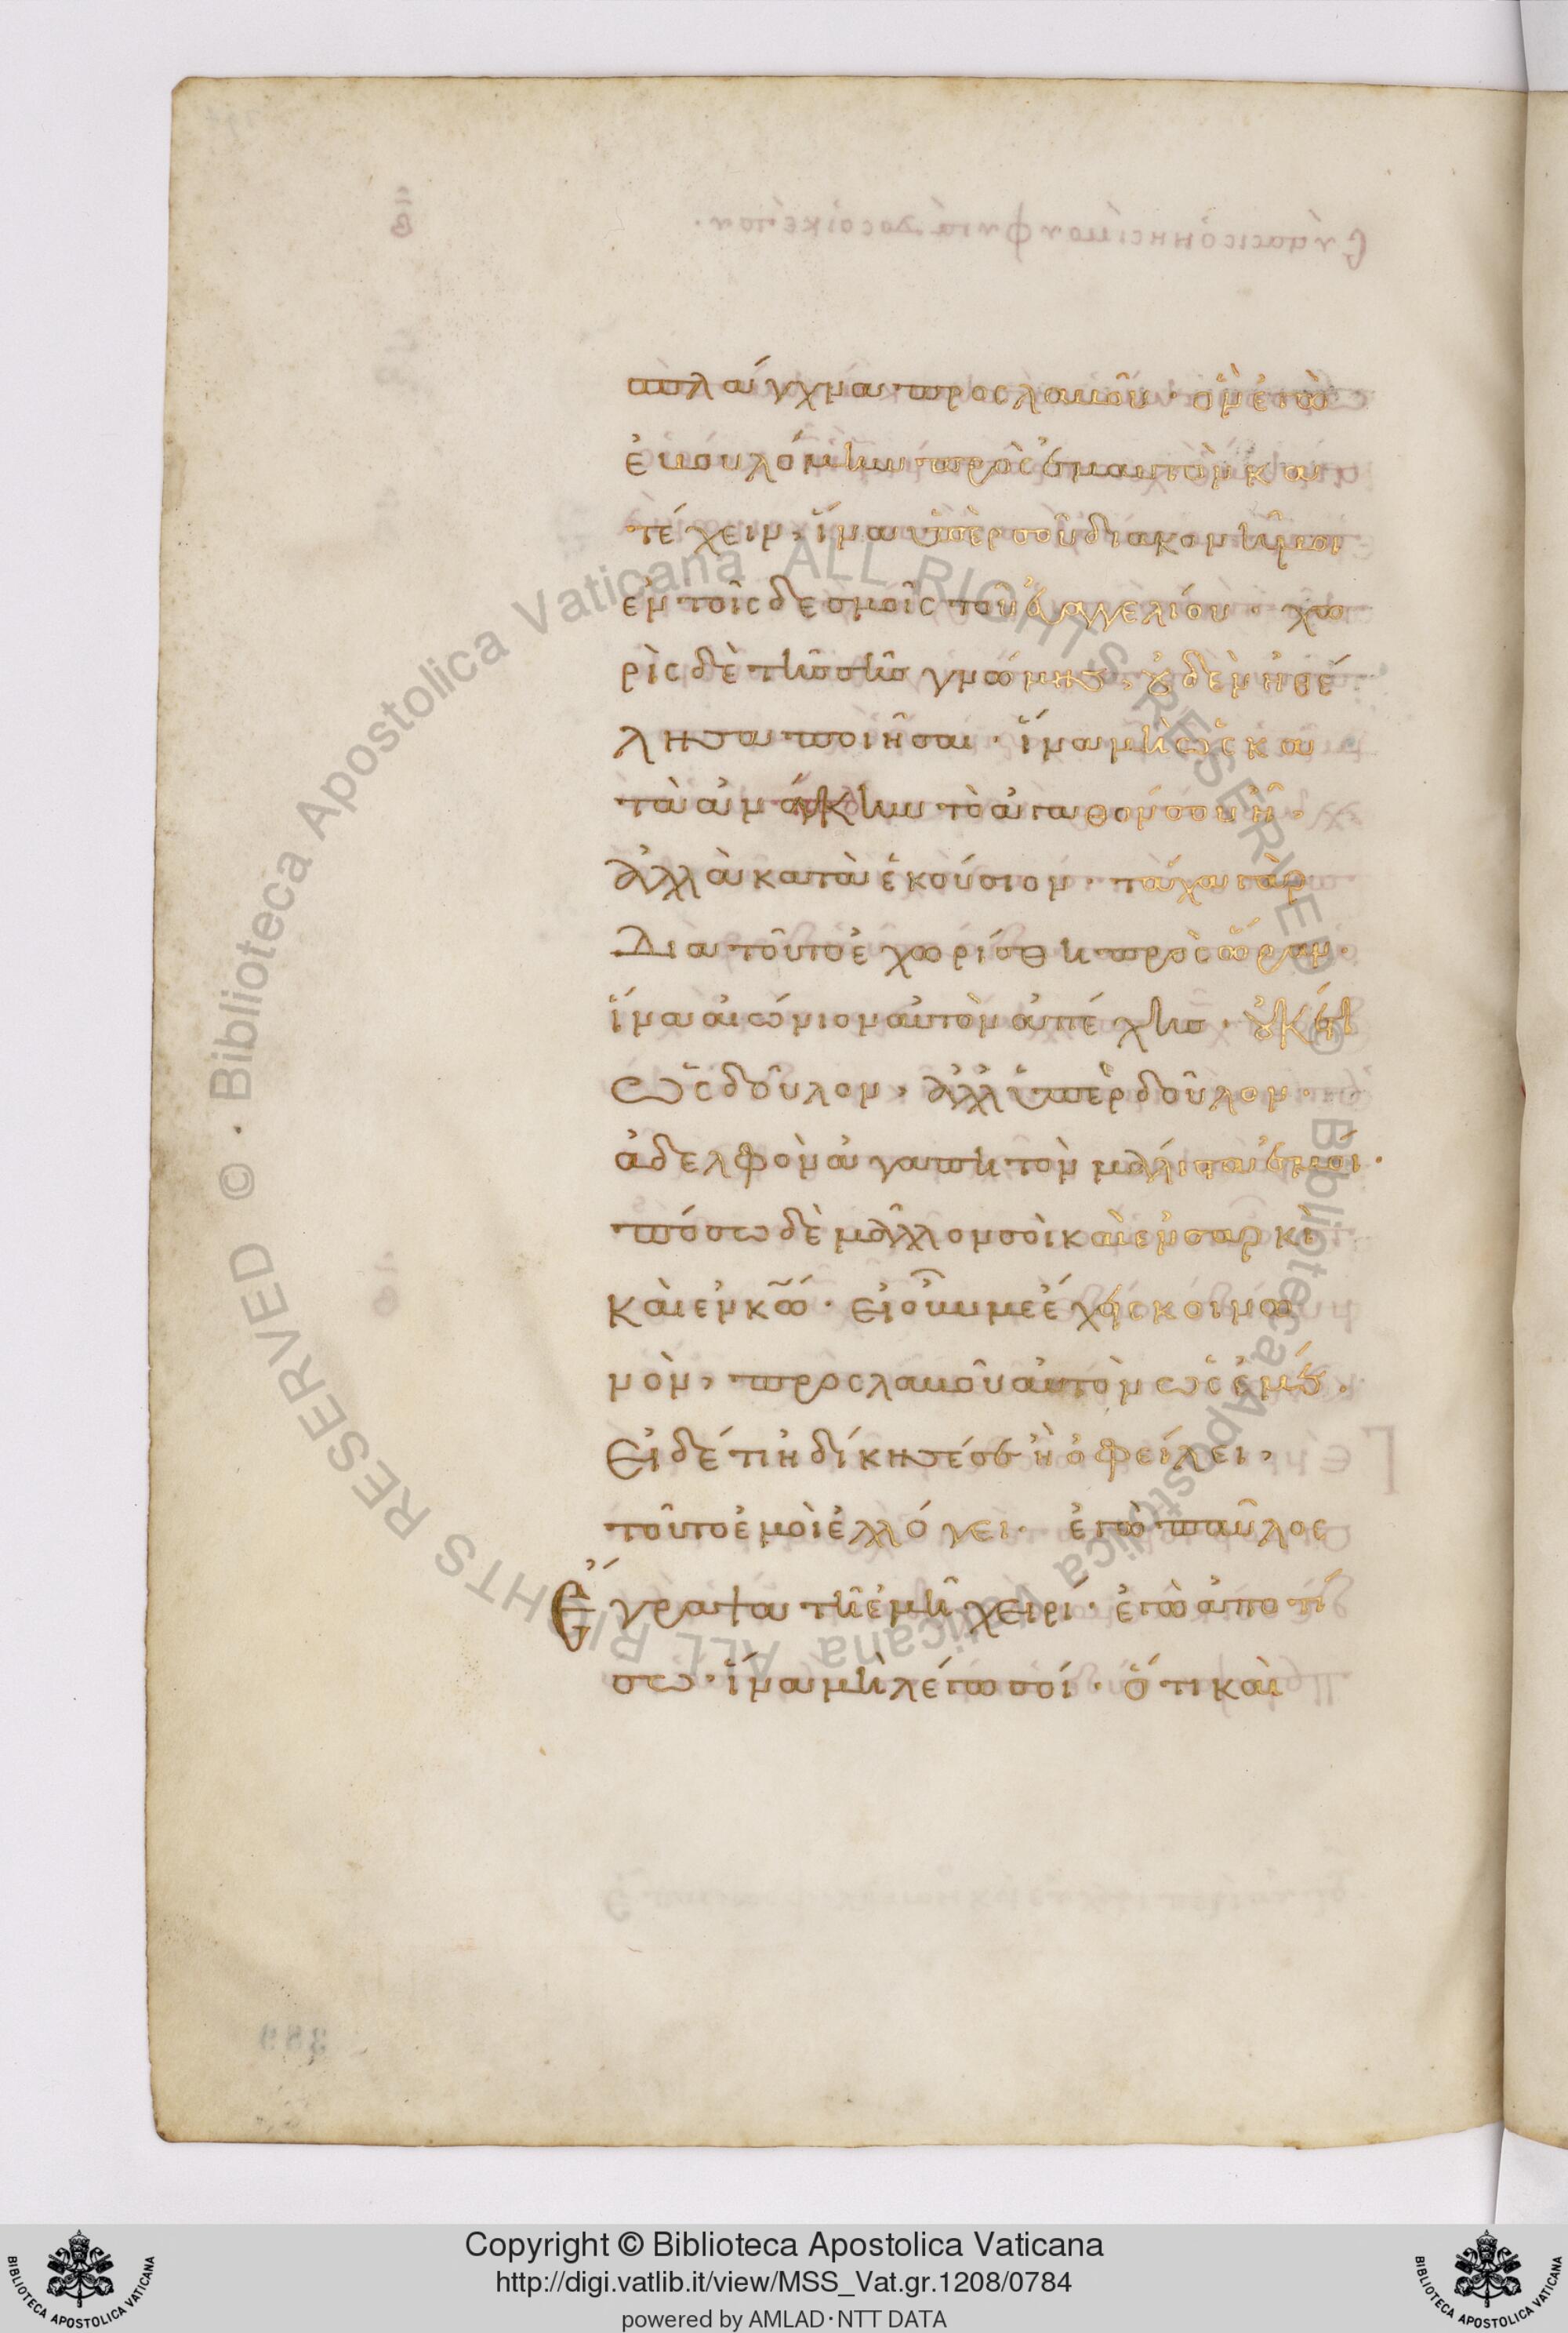 σπλάγχνα προσλαβοῦ· ὃν ἐγὼ
ἐβουλόμην πρὸς ἐμαυτὸν κα
τέχειν, ἵνα ὑπὲρ σοῦ διακονῆ μοι
ἐν τοῖς δεσμοῖς τοῦ εὐαγγελίου· χω
ρὶς δὲ τῆς σῆς γνώμης, οὐδὲν ἠθέ
λησα ποιῆσαι· ἵνα μὴ ὡς κα
τὰ ἀνάγκην τὸ ἀγαθόν σου ἦ·
ἀλλὰ κατὰ ἑκούσιον· τάχα γὰρ
Διατοῦτο ἐχωρίσθη πρὸς ὥραν·
ἵνα αἰώνιον αὐτὸν ἀπέχης· οὐκέτι
ὡς δοῦλον, ἀλλ' ὑπὲρ δοῦλον·
ἀδελφὸν ἀγαπητὸν μάλιστα ἐμοί·
πόσω δὲ μᾶλλον σοὶ καὶ ἐν σαρκὶ
καὶ ἐν κω· εἰ οὖν με ἔχεις κοινω
νὸν, προσλαβοῦ αὐτὸν ὡς ἐμέ·
Εἰ δέ τι ἠδίκησέ σε ἢ ὀφείλει,
τοῦτο ἐμοὶ ἐλλόγει· ἐγὼ παῦλος
Ἔγραψα τῆ ἐμῆ χειρί· ἐγὼ ἀποτί
σω· ἵνα μὴ λέγω σοί· ὅτι καὶ
389
Copyright © Biblioteca Apostolica Vaticana
http://digi.vatlib.it/view/MSS_Vat.gr.1208/0784
powered by AMLAD·NTT DATA
BIBLIOTECA APOSTOLICA VATICANA
BIBLIOTECA APOSTOLICA VATICANA
© · Biblioteca Apostolica Vaticana ALL RIGHTS RESERVED © Biblioteca Apostolica Vaticana ALL RIGHTS RESERVED